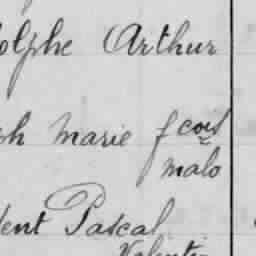 olphe Arthur
ph Marie fcois
malo
dent Pascal
Valentin